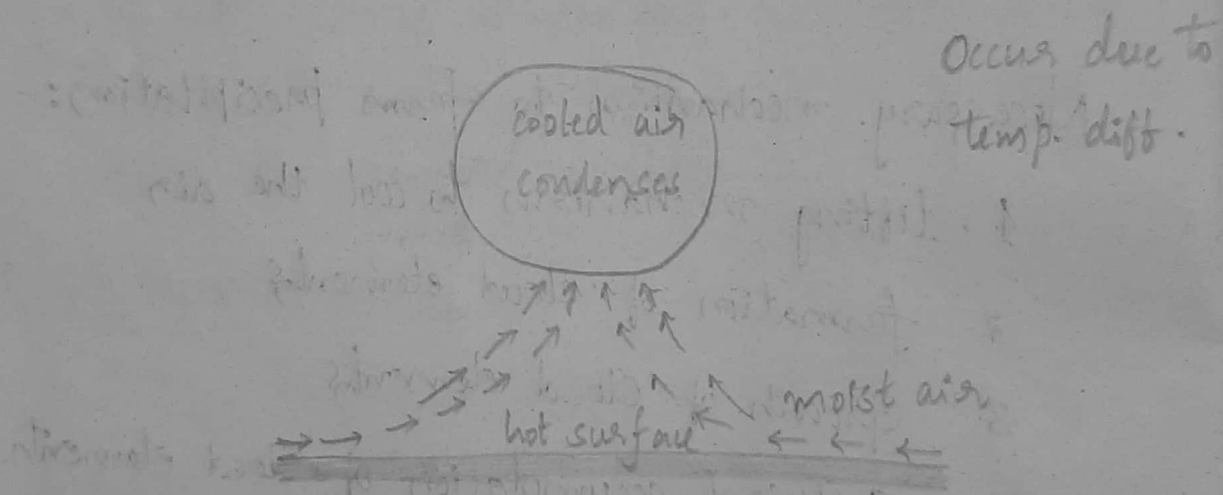 Occur due to
temp. diff.
cooled air
condenses
moist air
hot surface